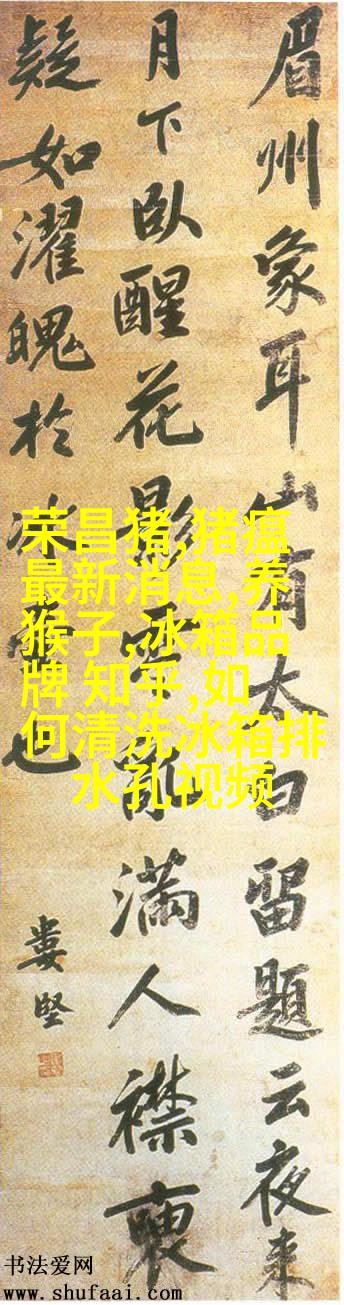 眉州象耳山有太白留題云夜来
月下臥醒花影零亂滿人襟
疑如濯魄於冰壺也
婁堅
荣昌猪,猪瘟
最新消息,养
猴子,冰箱品
牌 知乎,如
何清洗冰箱排
水孔视频
书法爱网
www.shufaai.com